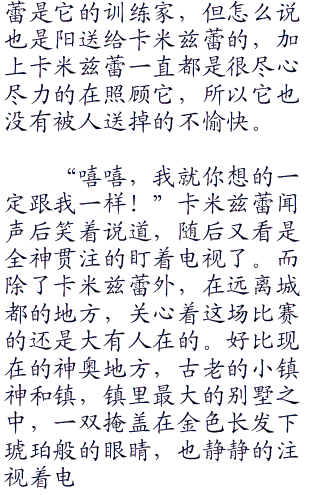 蕾是它的训练家，但怎么说
也是阳送给卡米兹蕾的，加
上卡米兹蕾一直都是很尽心
尽力的在照顾它，所以它也
没有被人送掉的不愉快。
“嘻嘻，我就你想的一
定跟我一样！”卡米兹蕾闻
声后笑着说道，随后又看是
全神贯注的盯着电视了。而
除了卡米兹蕾外，在远离城
都的地方，关心着这场比赛
的还是大有人在的。好比现
在的神奥地方，古老的小镇
神和镇，镇里最大的别墅之
中，一双掩盖在金色长发下
琥珀般的眼睛，也静静的注
视着电